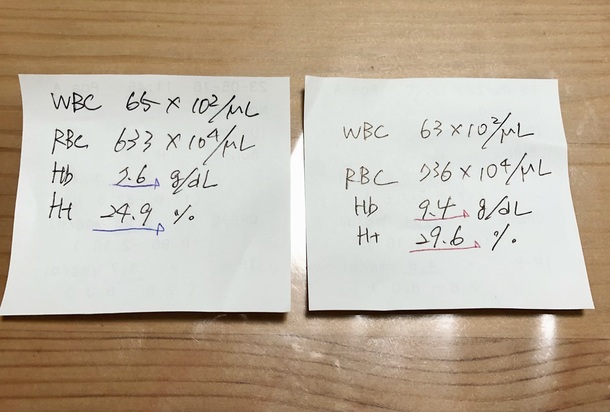 WBC 65 × 10²/μL
RBC 633 × 10⁴/μL
Hb g/dL
Ht 24.9 %
WBC 63 × 10²/μL
RBC × 10⁴/μL
Hb 9.4 g/dL
Ht 29.6 %